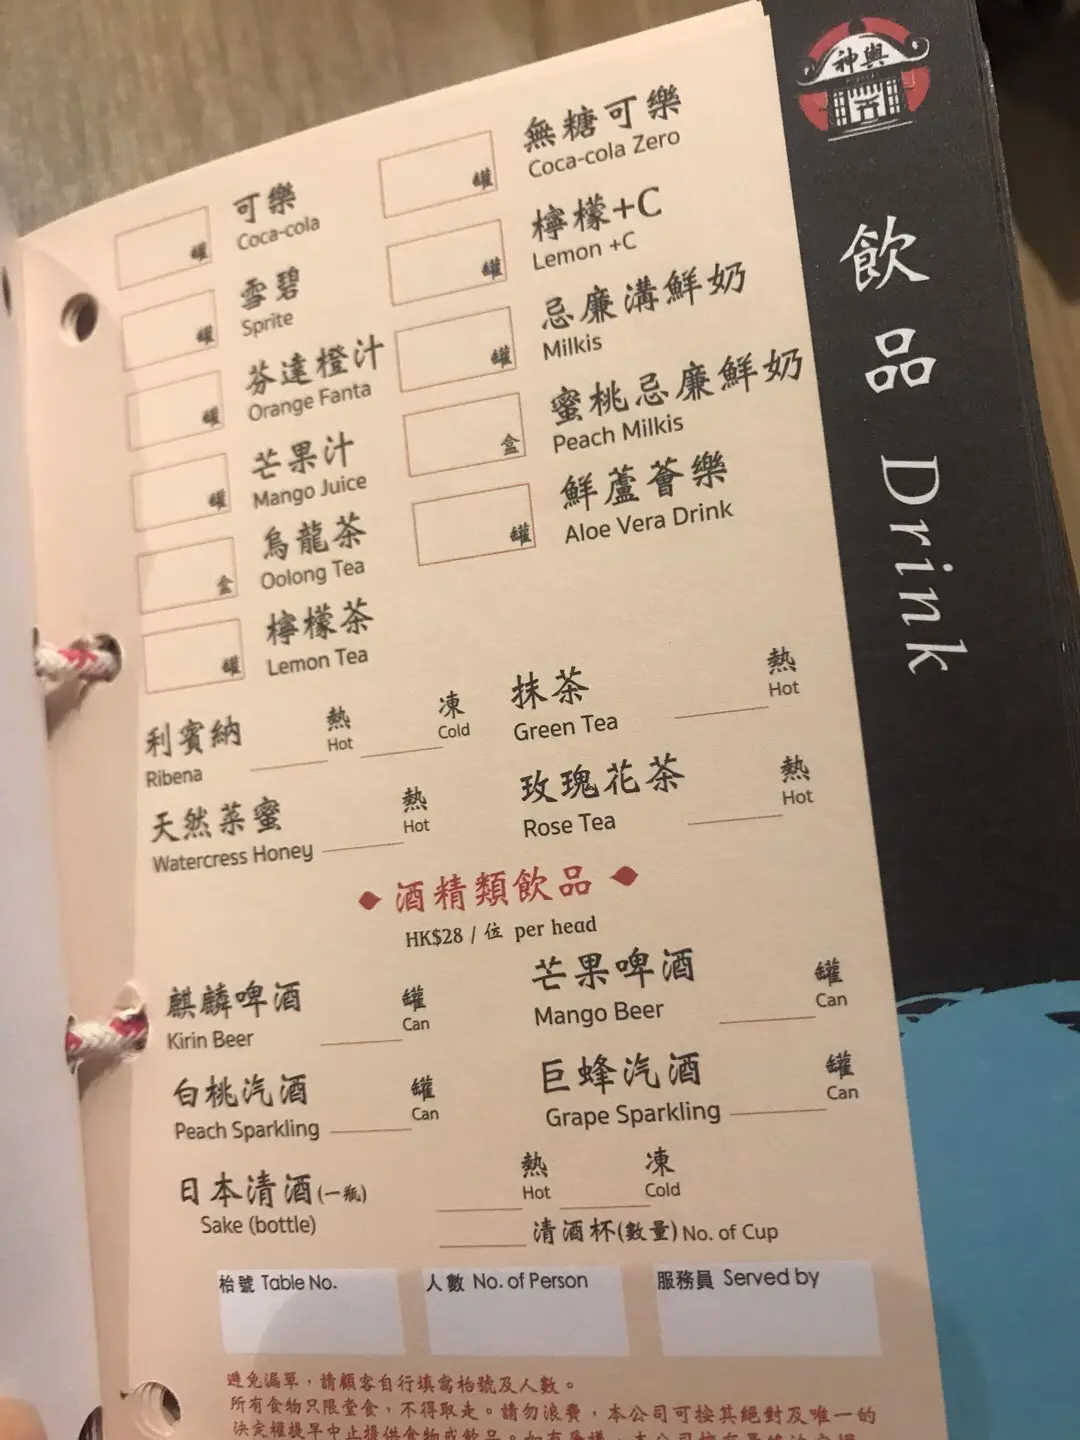 神輿
飲品 Drink
罐 可樂
Coca-cola
罐 無糖可樂
Coca-cola Zero
罐 雪碧
Sprite
罐 檸檬+C
Lemon +C
罐 芬達橙汁
Orange Fanta
罐 忌廉溝鮮奶
Milkis
罐 芒果汁
Mango Juice
盒 蜜桃忌廉鮮奶
Peach Milkis
盒 烏龍茶
Oolong Tea
罐 鮮蘆薈樂
Aloe Vera Drink
罐 檸檬茶
Lemon Tea
利賓納 熱 凍
Ribena Hot Cold
抹茶 熱
Green Tea Hot
天然菜蜜 熱
Watercress Honey Hot
玫瑰花茶 熱
Rose Tea Hot
酒精類飲品
HK$28 / 位 per head
麒麟啤酒 罐
Kirin Beer Can
芒果啤酒 罐
Mango Beer Can
白桃汽酒 罐
Peach Sparkling Can
巨蜂汽酒 罐
Grape Sparkling Can
日本清酒(一瓶) 熱 凍
Sake (bottle) Hot Cold
清酒杯(數量) No. of Cup
枱號 Table No. 人數 No. of Person 服務員 Served by
避免漏單，請顧客自行填寫枱號及人數。
所有食物只限堂食，不得取走。請勿浪費，本公司可按其絕對及唯一的
決定權提早中止提供食物或飲品。如有